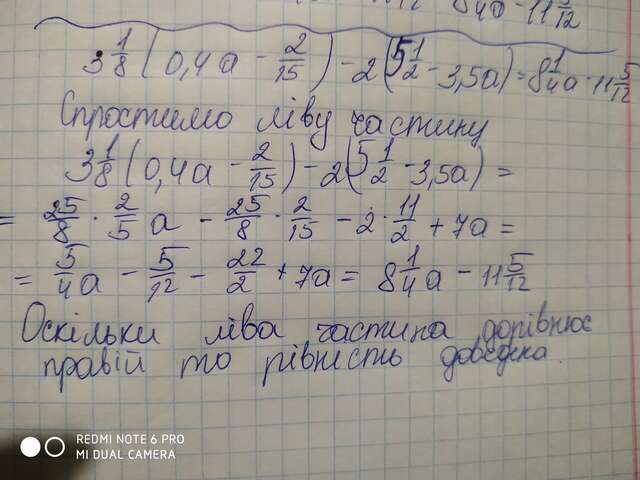 840 - 11 5/12
3 1/8 (0,4a - 2/15) - 2(5 1/2 - 3,5a) = 8 1/4 a - 11 5/12
Спростимо ліву частину
3 1/8 (0,4a - 2/15) - 2(5 1/2 - 3,5a) =
= 25/8 · 2/5 a - 25/8 · 2/15 - 2 · 11/2 + 7a =
= 5/4 a - 5/12 - 22/2 + 7a = 8 1/4 a - 11 5/12
Оскільки ліва частина дорівнює
правій то рівність доведена.
REDMI NOTE 6 PRO
MI DUAL CAMERA